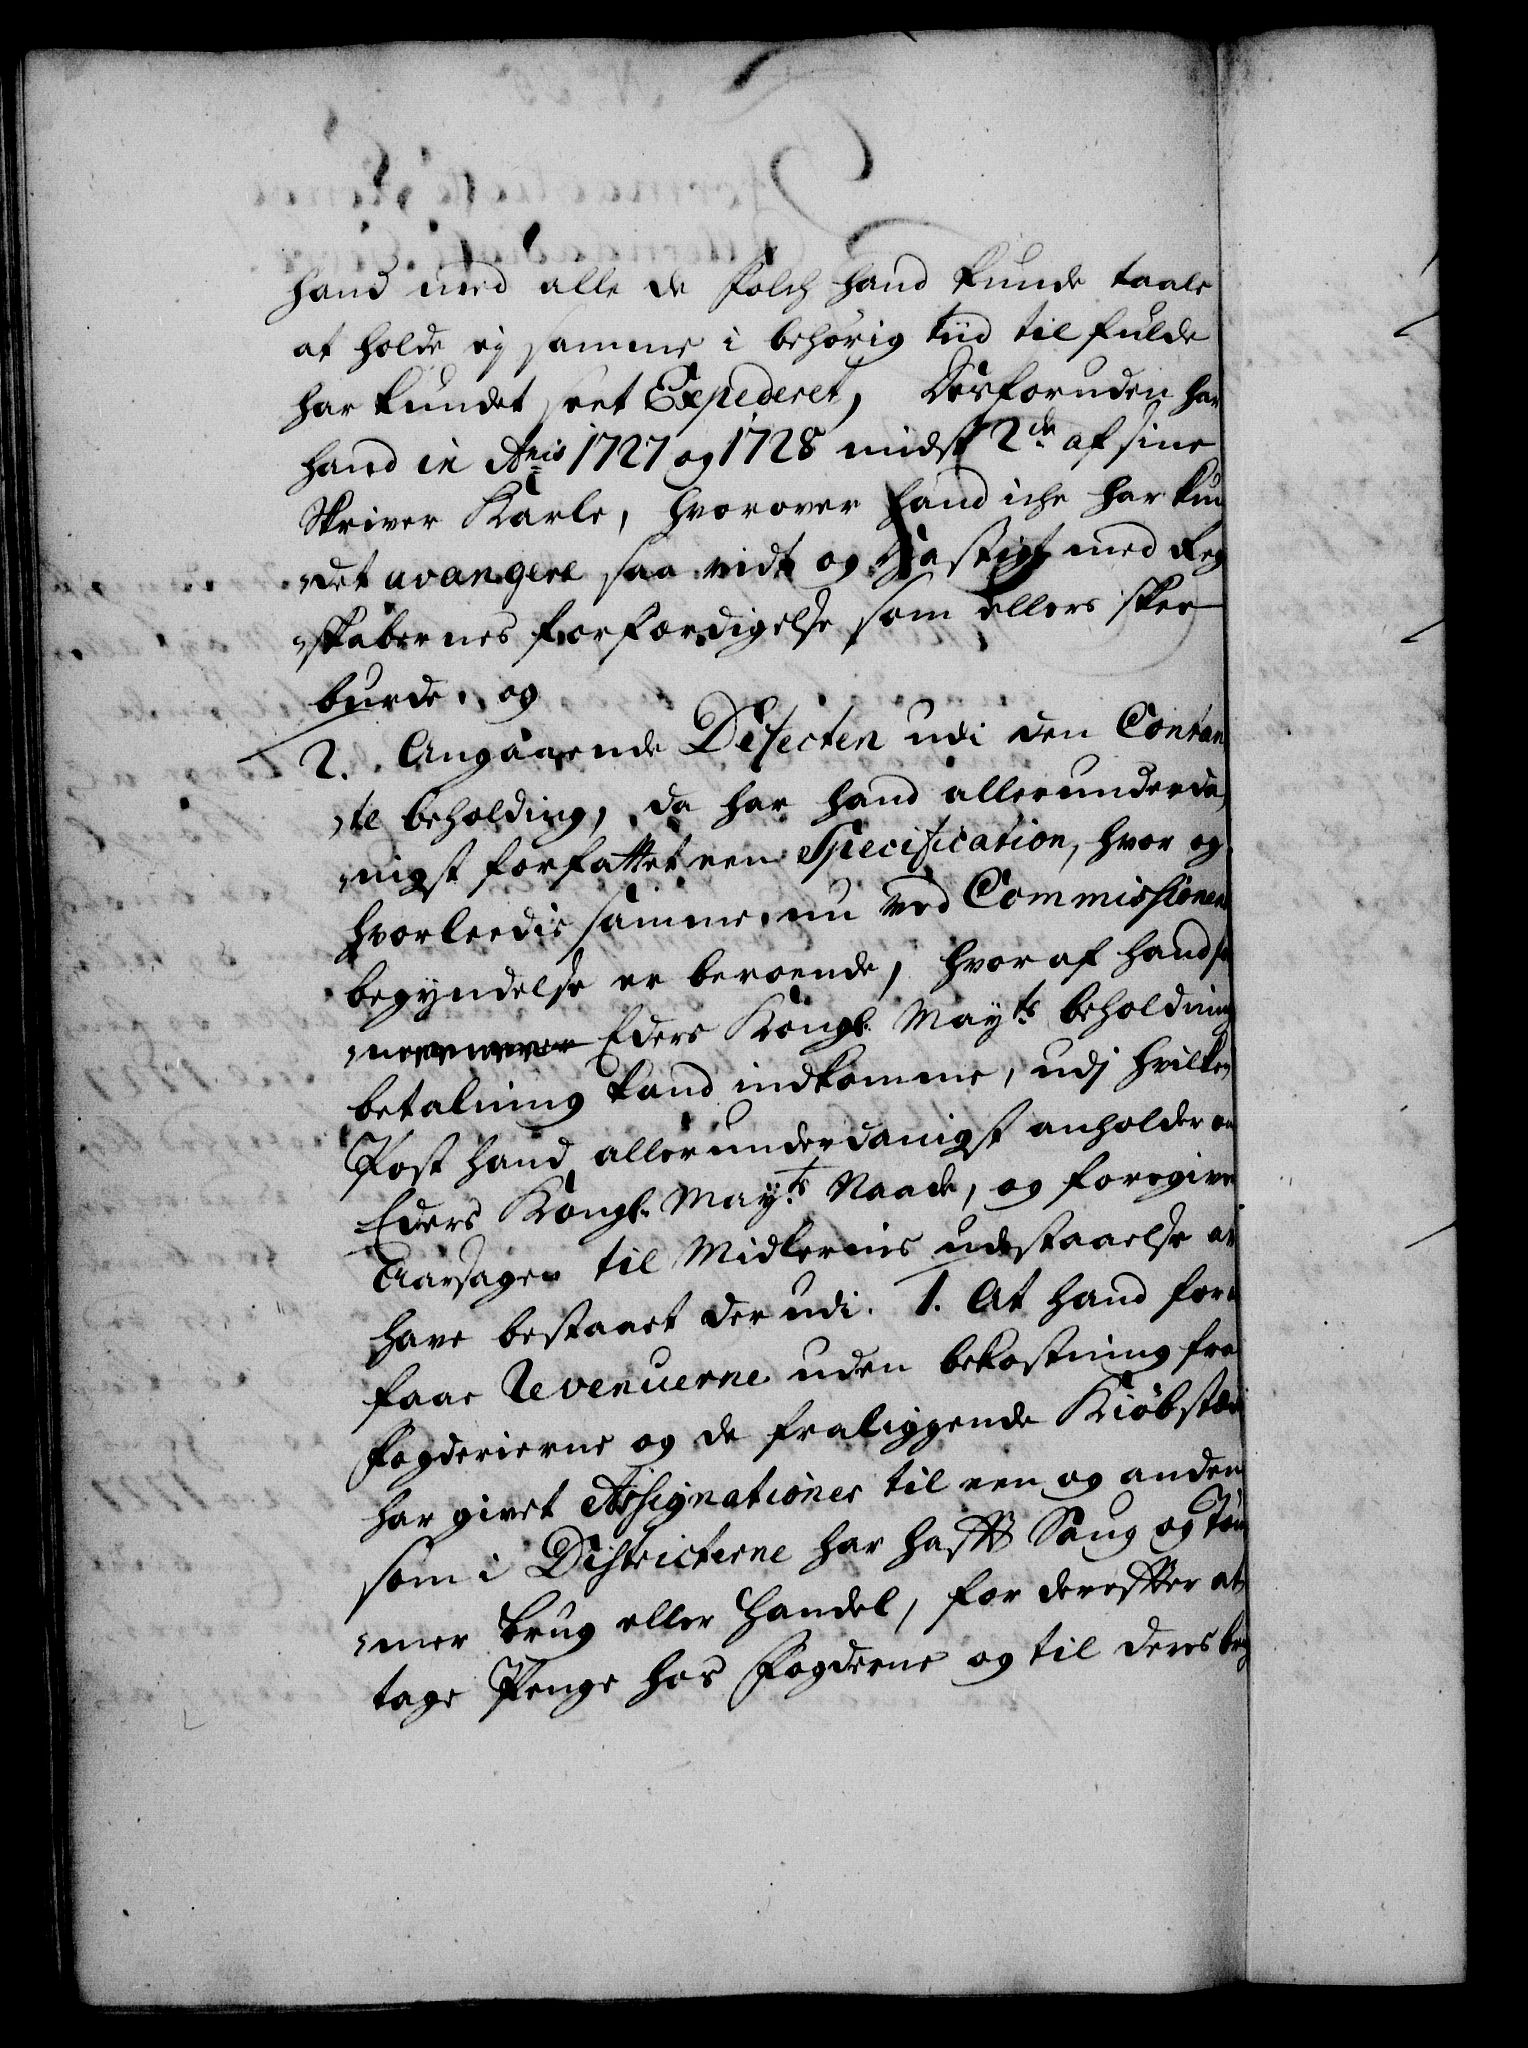 hand med alle de folch hand kunde taale
at holde ej samme i behörig tiid til fulde
har kundet seet Expederet, Desforuden har
hand in Anis 1727 og 1728 midst 2de af sine
Skriver Karle, hvorover hand iche har kun
det avangere saa vidt og Hastigt med Reg
skabernes forfærdigelse som ellers skee
burde. og
2. Angaaende Defecten udi den Contan
te beholding, da har hand allerunderda
nigst forfattet een Specification, hvor og
hvorleedis samme nu ved Commissionens
begyndelse er beroende, hvoraf hand
Eders Kongl. Mayts beholdning
betalning kand indkomme, udj hvilken
Post hand allerunderdanigst anholder om
Eders Kongl. Mayts Naade, og foregiver
Aarsagen til Midlernis udestaaelse at
have bestaaet derudi. 1. At hand for at
faae Revenuerne uden bekostning fra
fogderierne og de fraliggende Kiöbstæder
har givet Assignationer til een og anden
som i Districterne har hafft Saug og Töm
mer brug eller Handel, for dereffter at
tage Penge hos fogderne og til deres